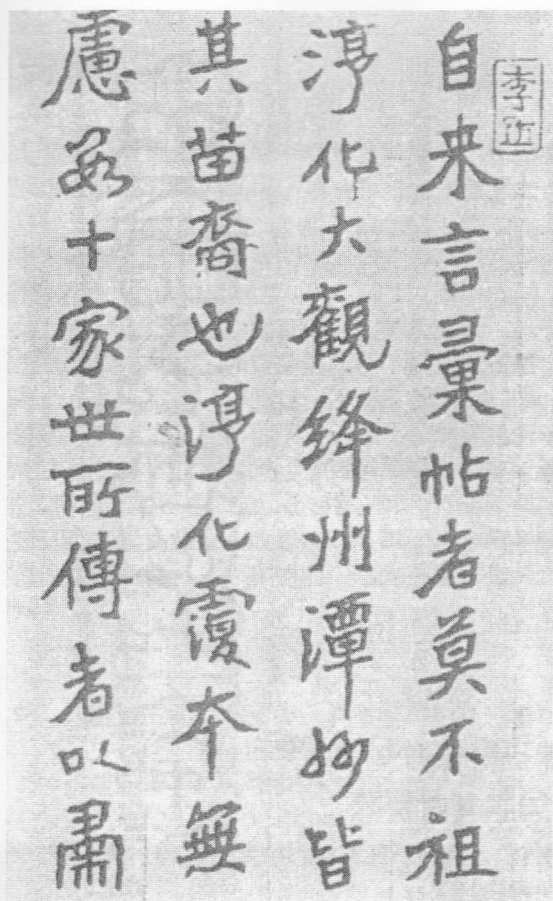 自来言彙帖者莫不祖
淳化大觀絳州潭妙皆
其苗裔也淳化覆本無
慮數十家世所傳者以肅